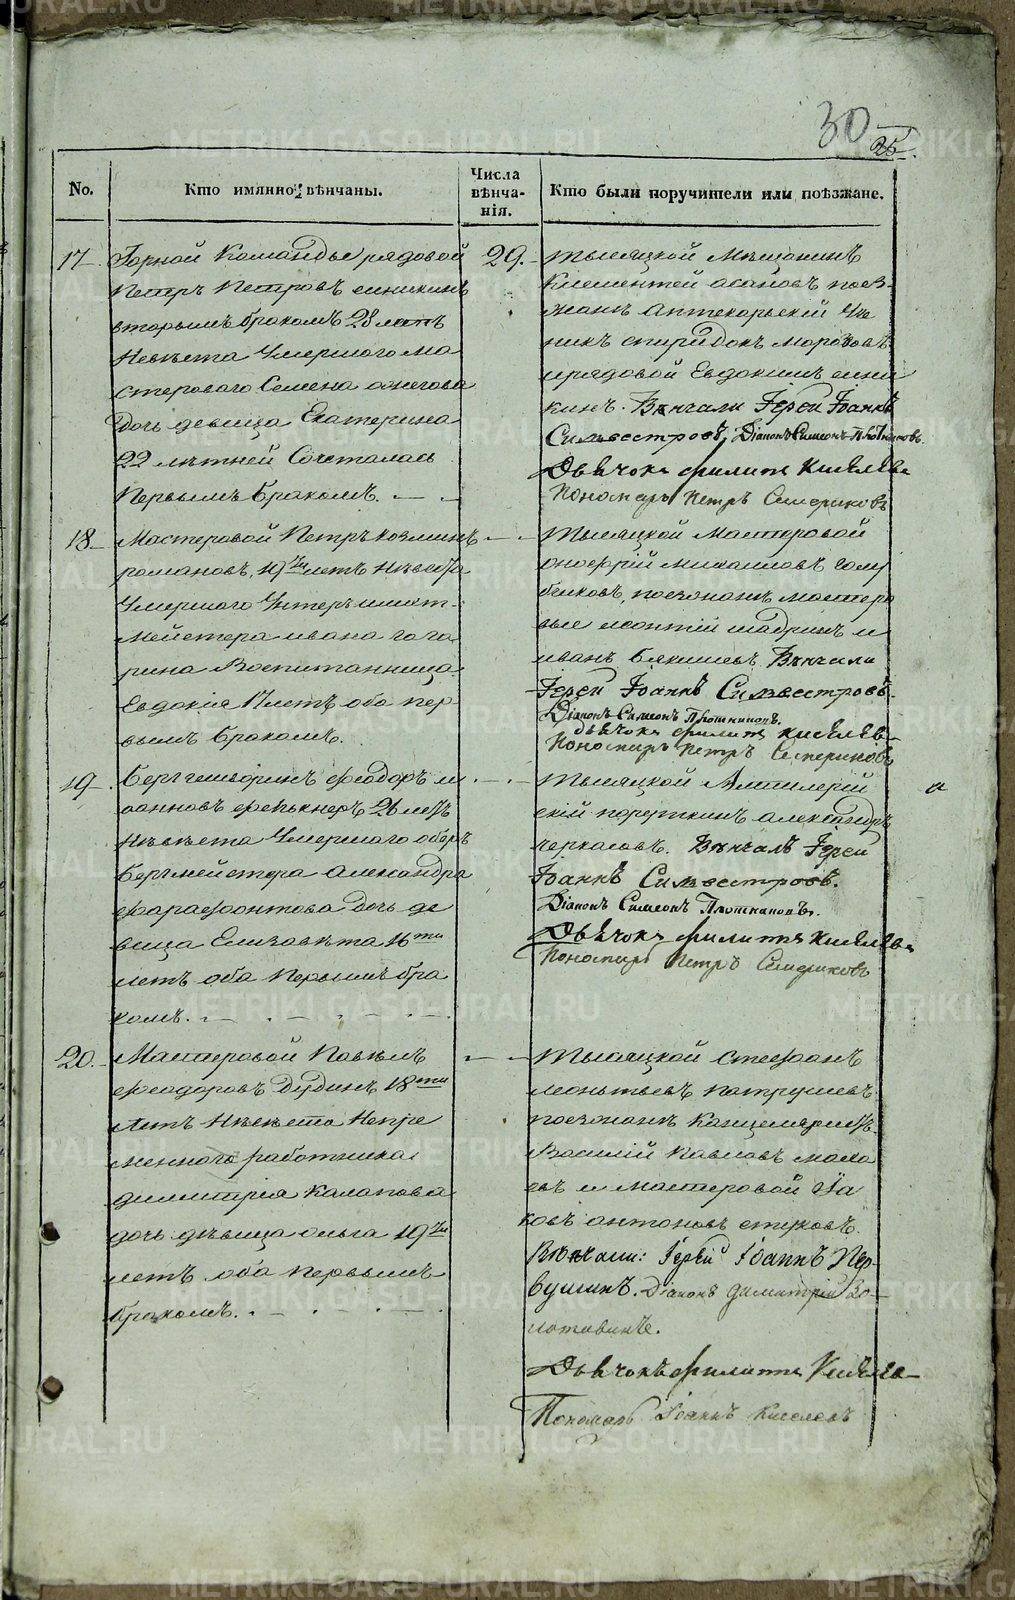 30
25.
No.
Кто имянно вѣнчаны.
Числа вѣнча-нія.
Кто были поручители или поѣзжане.
17.
Горной Команды рядовой
Петръ Петровъ
вторымъ бракомъ 28 летъ
Невѣста Умершаго ма
стероваго Семена ожегова
Дочь девица Екатерина
22 лѣтней Сочеталась
Первымъ бракомъ.
29.
тысяцкой Мещанинъ
Климентей асановъ поез-
жанъ Аптекарьскiй Уче
никъ спиридонъ Морозовъ
ирядовой Евдокимъ
кинъ. Вѣнчали Iерей Iоаннъ
Сильвестровъ, Дiаконъ Симеонъ Плотниковъ.
Дьячокъ филипъ Киселевъ
Пономарь Петръ Семериковъ
18
Мастеровой Петръ козминъ
романовъ, 19ти летъ Невеста
Умершаго Унтеръ шихт-
мейстера ивана гага
рина Воспитанница
Евдокiя 17 летъ оба пер
вымъ бракомъ.
тысяцкой Мастеровой
онофрiй михаиловъ голу
бчиковъ, поезжанъ мастеро
вые леонтiй шабринъ и
иванъ Вѣнчали
Iерей Iоаннъ Сильвестровъ.
Дiаконъ Симеонъ Плотниковъ.
дьячокъ филипъ киселевъ
Пономарь Петръ Семериковъ
19
Бергешворинъ феодоръ и
оанновъ фелькнеръ 26 летъ
Невѣста Умершаго оберъ
Бергмейстера Александра
фарафонтова дочь де
вица Елизавѣта 16ти
летъ оба первымъ бра
комъ.
тысяцкой Артилерiй
скiй порутчикъ александръ
черкасовъ. Вѣнчалъ Iерей
Iоаннъ Сильвестровъ.
Дiаконъ Симеонъ Плотниковъ.
Дьячокъ филипъ киселевъ
Пономарь Петръ Семериковъ
а
20.
Мастеровой Павелъ
феодоровъ Дудинъ 18ти
летъ Невѣста Непре
меннаго работника
димитрiя Калапова
дочь дѣвица ольга 19ти
летъ оба первымъ
бракомъ.
тысяцкой стефанъ
леонтьевъ патрушевъ
поезжанъ Канцеляристъ
Василiй Павловъ мала
евъ и мастеровой Iа
ковъ антоновъ стуковъ
Вѣнчали: Iерей Iоаннъ Пер-
вушинъ. Дiаконъ Димитрiй Зо-
лотавинъ.
Дьячокъ филипъ Киселевъ
Пономарь Iоаннъ Киселевъ
METRIKI.GASO-URAL.RU